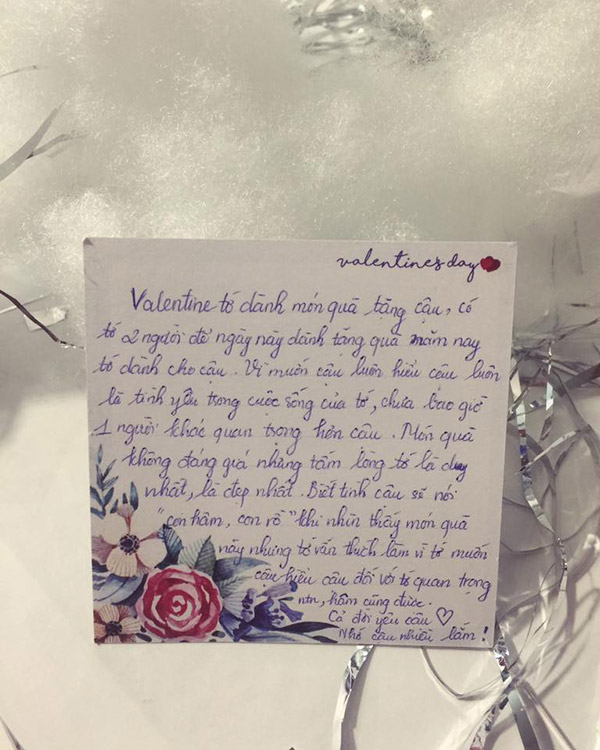 valentinesday
Valentine tớ dành món quà tặng cậu, có
tớ 2 người để ngày này dành tặng quà năm nay
tớ dành cho cậu. Vì muốn cậu luôn hiểu cậu luôn
là tình yêu trong cuộc sống của tớ, chưa bao giờ
1 người khác quan trọng hơn cậu. Món quà
không đáng quá nhưng tấm lòng tớ là duy
nhất, là đẹp nhất. Biết tính cậu sẽ nói
"con hâm, con rồ" khi nhìn thấy món quà
này nhưng tớ vẫn thích làm vì tớ muốn
cậu hiểu cậu đối với tớ quan trọng
ntn, hâm cũng được.
Cả đời yêu cậu ♡
Nhớ cậu nhiều lắm!